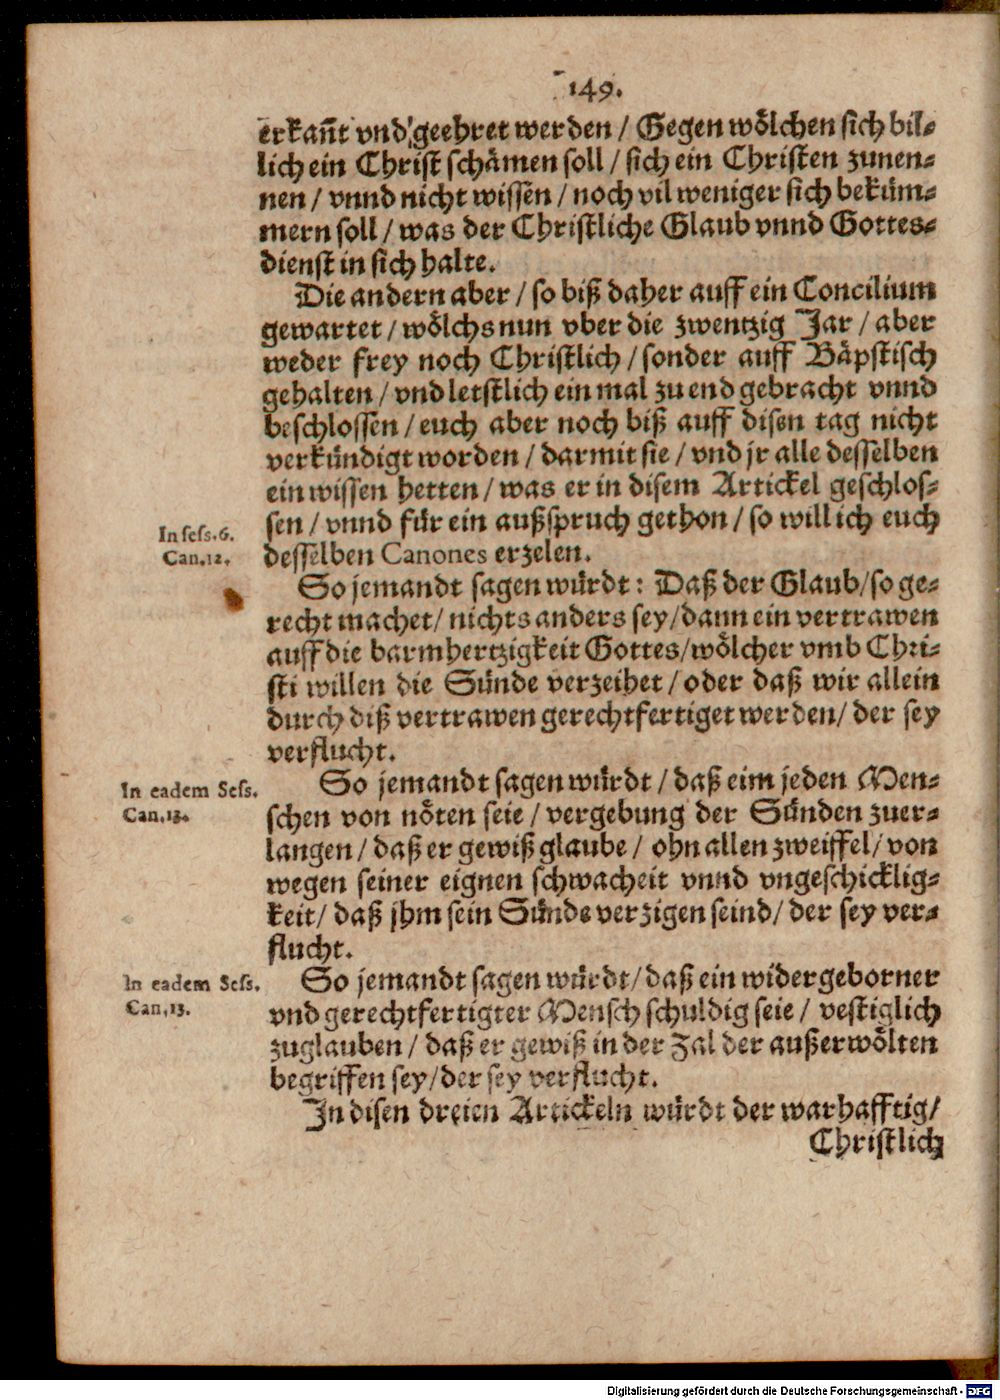 149.
erkañt vnd geehret werden / Gegen wölchen sich bil-
lich ein Christ schämen soll / sich ein Christen zunen-
nen / vnnd nicht wissen / noch vil weniger sich beküm-
mern soll / was der Christliche Glaub vnnd Gottes-
dienst in sich halte.
Die andern aber / so biß daher auff ein Concilium
gewartet / wölchs nun vber die zwentzig Jar / aber
weder frey noch Christlich / sonder auff Bäpstisch
gehalten / vnd letstlich ein mal zu end gebracht vnnd
beschlossen / euch aber noch biß auff disen tag nicht
verkündigt worden / darmit sie / vnd jr alle desselben
ein wissen hetten / was er in disem Artickel geschlos-
sen / vnnd für ein außspruch gethon / so will ich euch
desselben Canones erzelen.
In sess. 6.
Can. 12.
So jemandt sagen würdt: Daß der Glaub / so ge-
recht machet / nichts anders sey / dann ein vertrawen
auff die barmhertzigkeit Gottes / wölcher vmb Chri-
sti willen die Sünde verzeihet / oder daß wir allein
durch diß vertrawen gerechtfertiget werden / der sey
verflucht.
In eadem Sess.
Can. 13.
So jemandt sagen würdt / daß eim jeden Men-
schen von nöten seie / vergebung der Sünden zuer-
langen / daß er gewiß glaube / ohn allen zweiffel / von
wegen seiner eignen schwacheit vnnd vngeschicklig-
keit / daß jhm sein Sünde verzigen seind / der sey ver-
flucht.
In eadem Sess.
Can. 13.
So jemandt sagen würdt / daß ein widergeborner
vnd gerechtfertigter Mensch schuldig seie / vestiglich
zuglauben / daß er gewiß in der Zal der außerwölten
begriffen sey / der sey verflucht.
In disen dreien Artickeln würdt der warhafftig /
Christlich
Digitalisierung gefördert durch die Deutsche Forschungsgemeinschaft - DFG